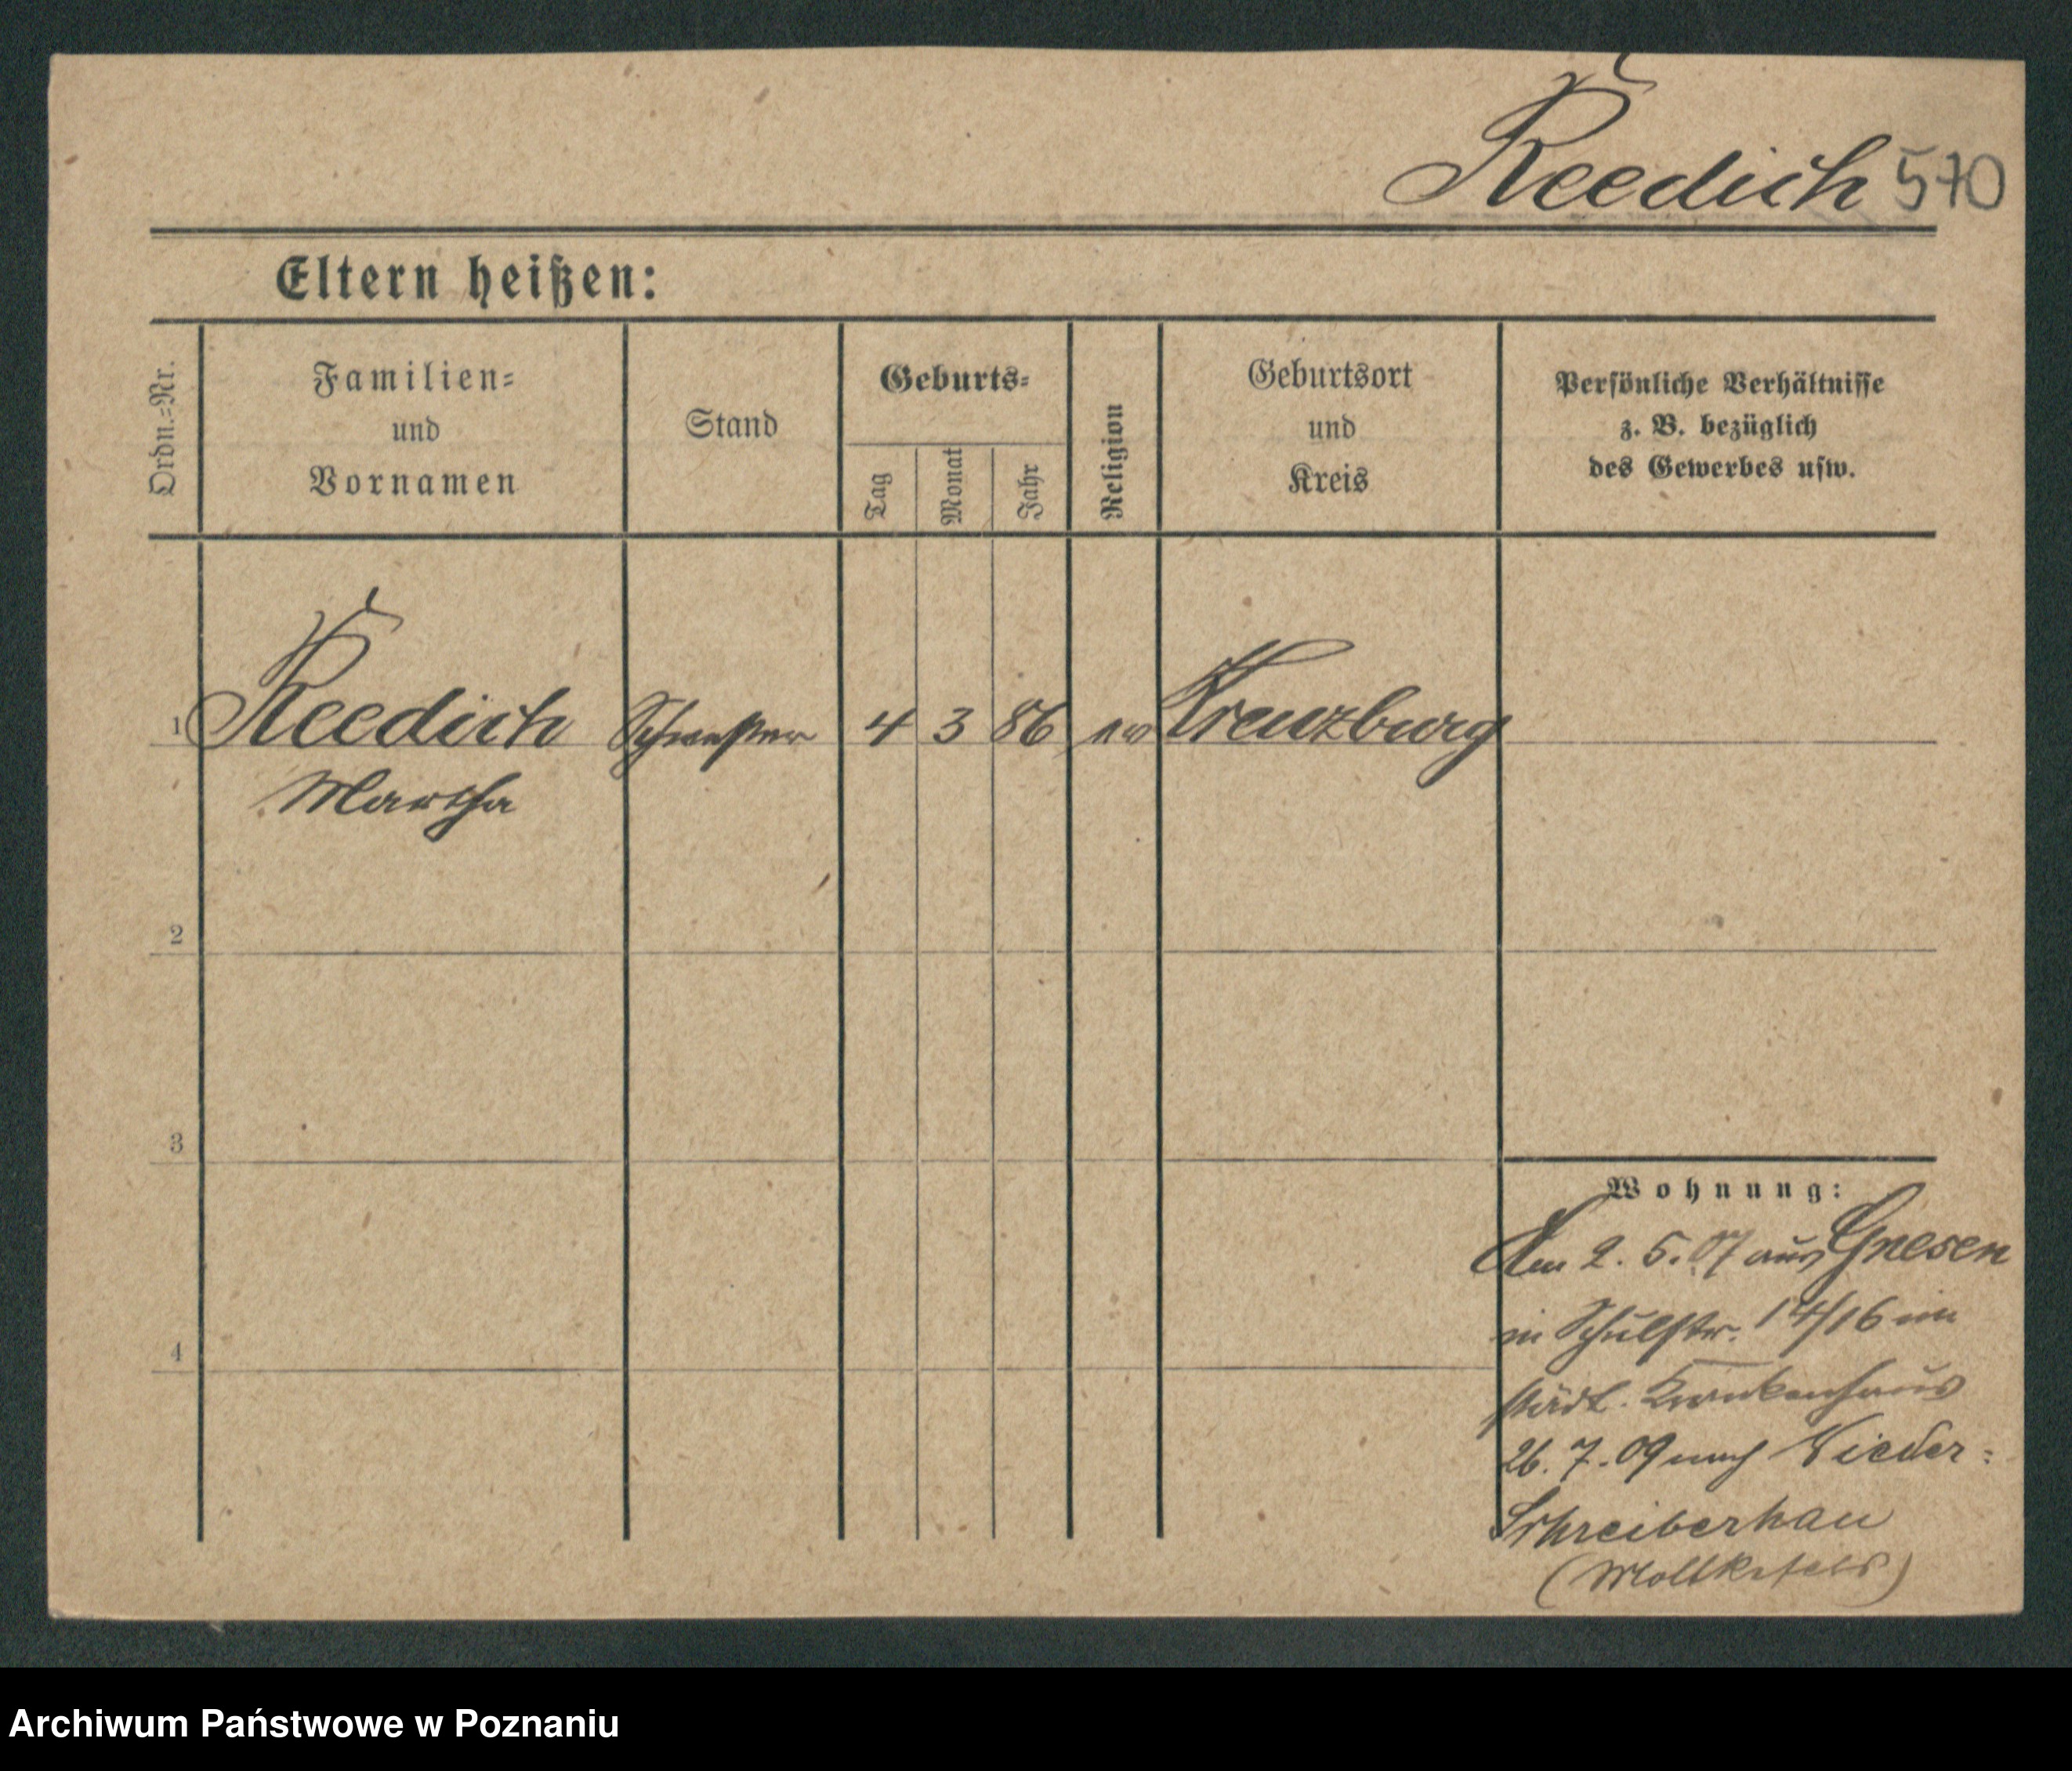 Reedich 570
Eltern heißen:
Ordn.=Nr.
Familien=
und
Vornamen
Stand
Geburts=
Tag
Monat
Jahr
Religion
Geburtsort
und
Kreis
Persönliche Verhältnisse
z. B. bezüglich
des Gewerbes usw.
1 Reedich Schwester 4 3 86 ev Kreuzburg
Martha
2
3
4
Wohnung:
Am 2. 5. 07 aus Gnesen
in Schulstr. 14/16 im
städt. Krankenhaus
26. 7. 09 nach Nieder=
Schreiberhau
(Moltkefels)
Archiwum Państwowe w Poznaniu